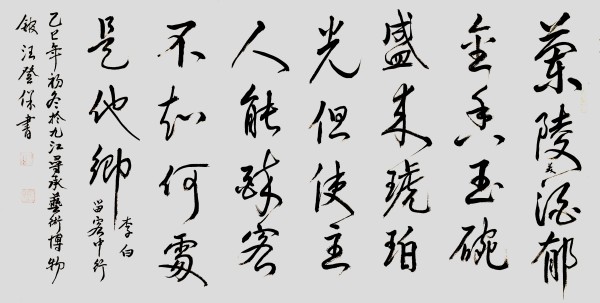 蘭陵美酒郁
金香玉碗
盛来琥珀
光但使主
人能醉客
不知何處
是他鄉
李白
留客中行
乙巳年初冬於九江承藝術博物
館汪登保書